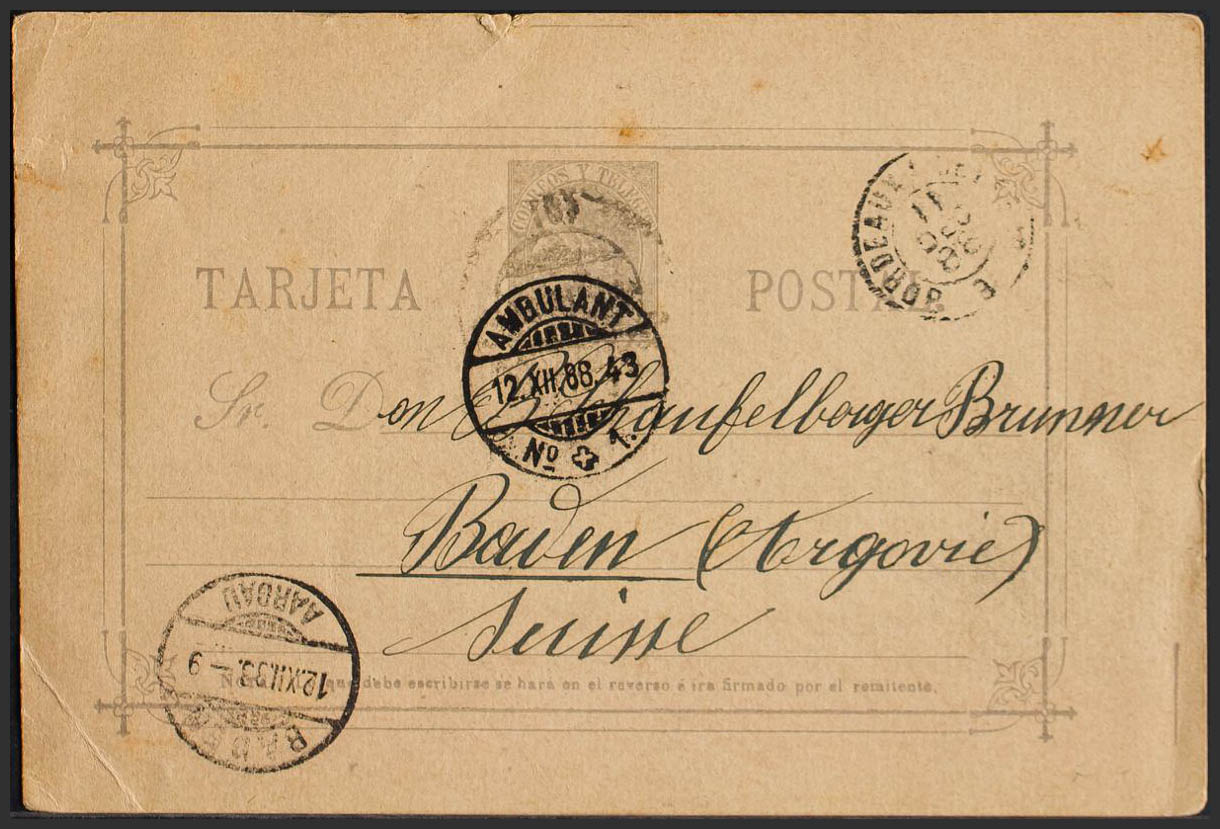 CORREOS Y TELEG
TARJETA POSTAL
BORDEAUX
AMBULANT
12.XII.88.43
Nº 1.
Sr. Don Schaufelberger Brunner
Baden (Argovie)
Suisse
que debe escribirse se hará en el reverso é ira firmado por el remitente.
BADEN
12.XII.88.-9
AARGAU